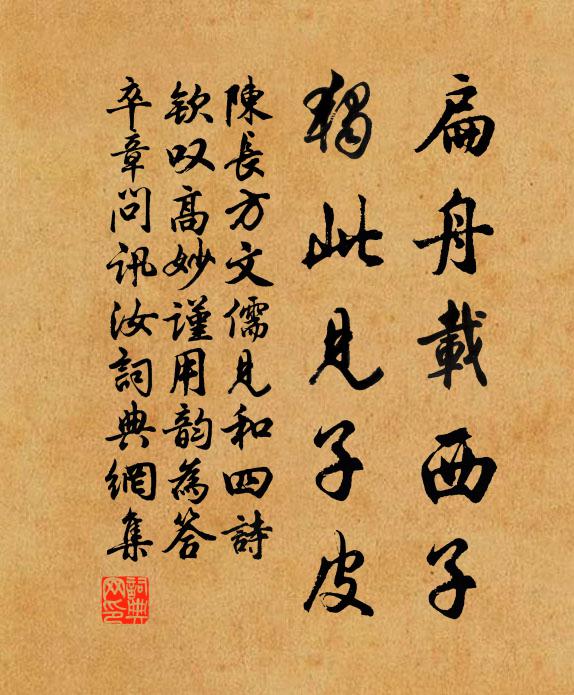 扁舟載西子
獨此見子皮
陳長方文儒見和四詩
欽叹高妙謹用韵為答
卒章問訊汝詞典網集
詞典
网印